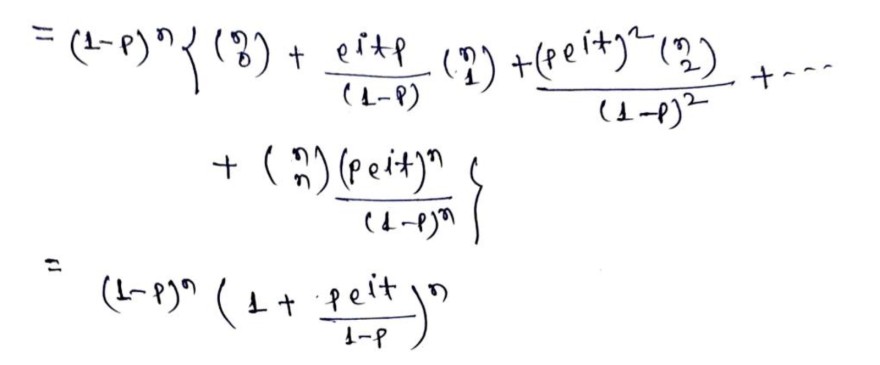 = (1-p)^n { (n 0) + e^{it}p/(1-p) (n 1) + (pe^{it})^2 (n 2)/(1-p)^2 + ----
+ (n n) (pe^{it})^n/(1-p)^n }
=
(1-p)^n (1 + pe^{it}/1-p)^n